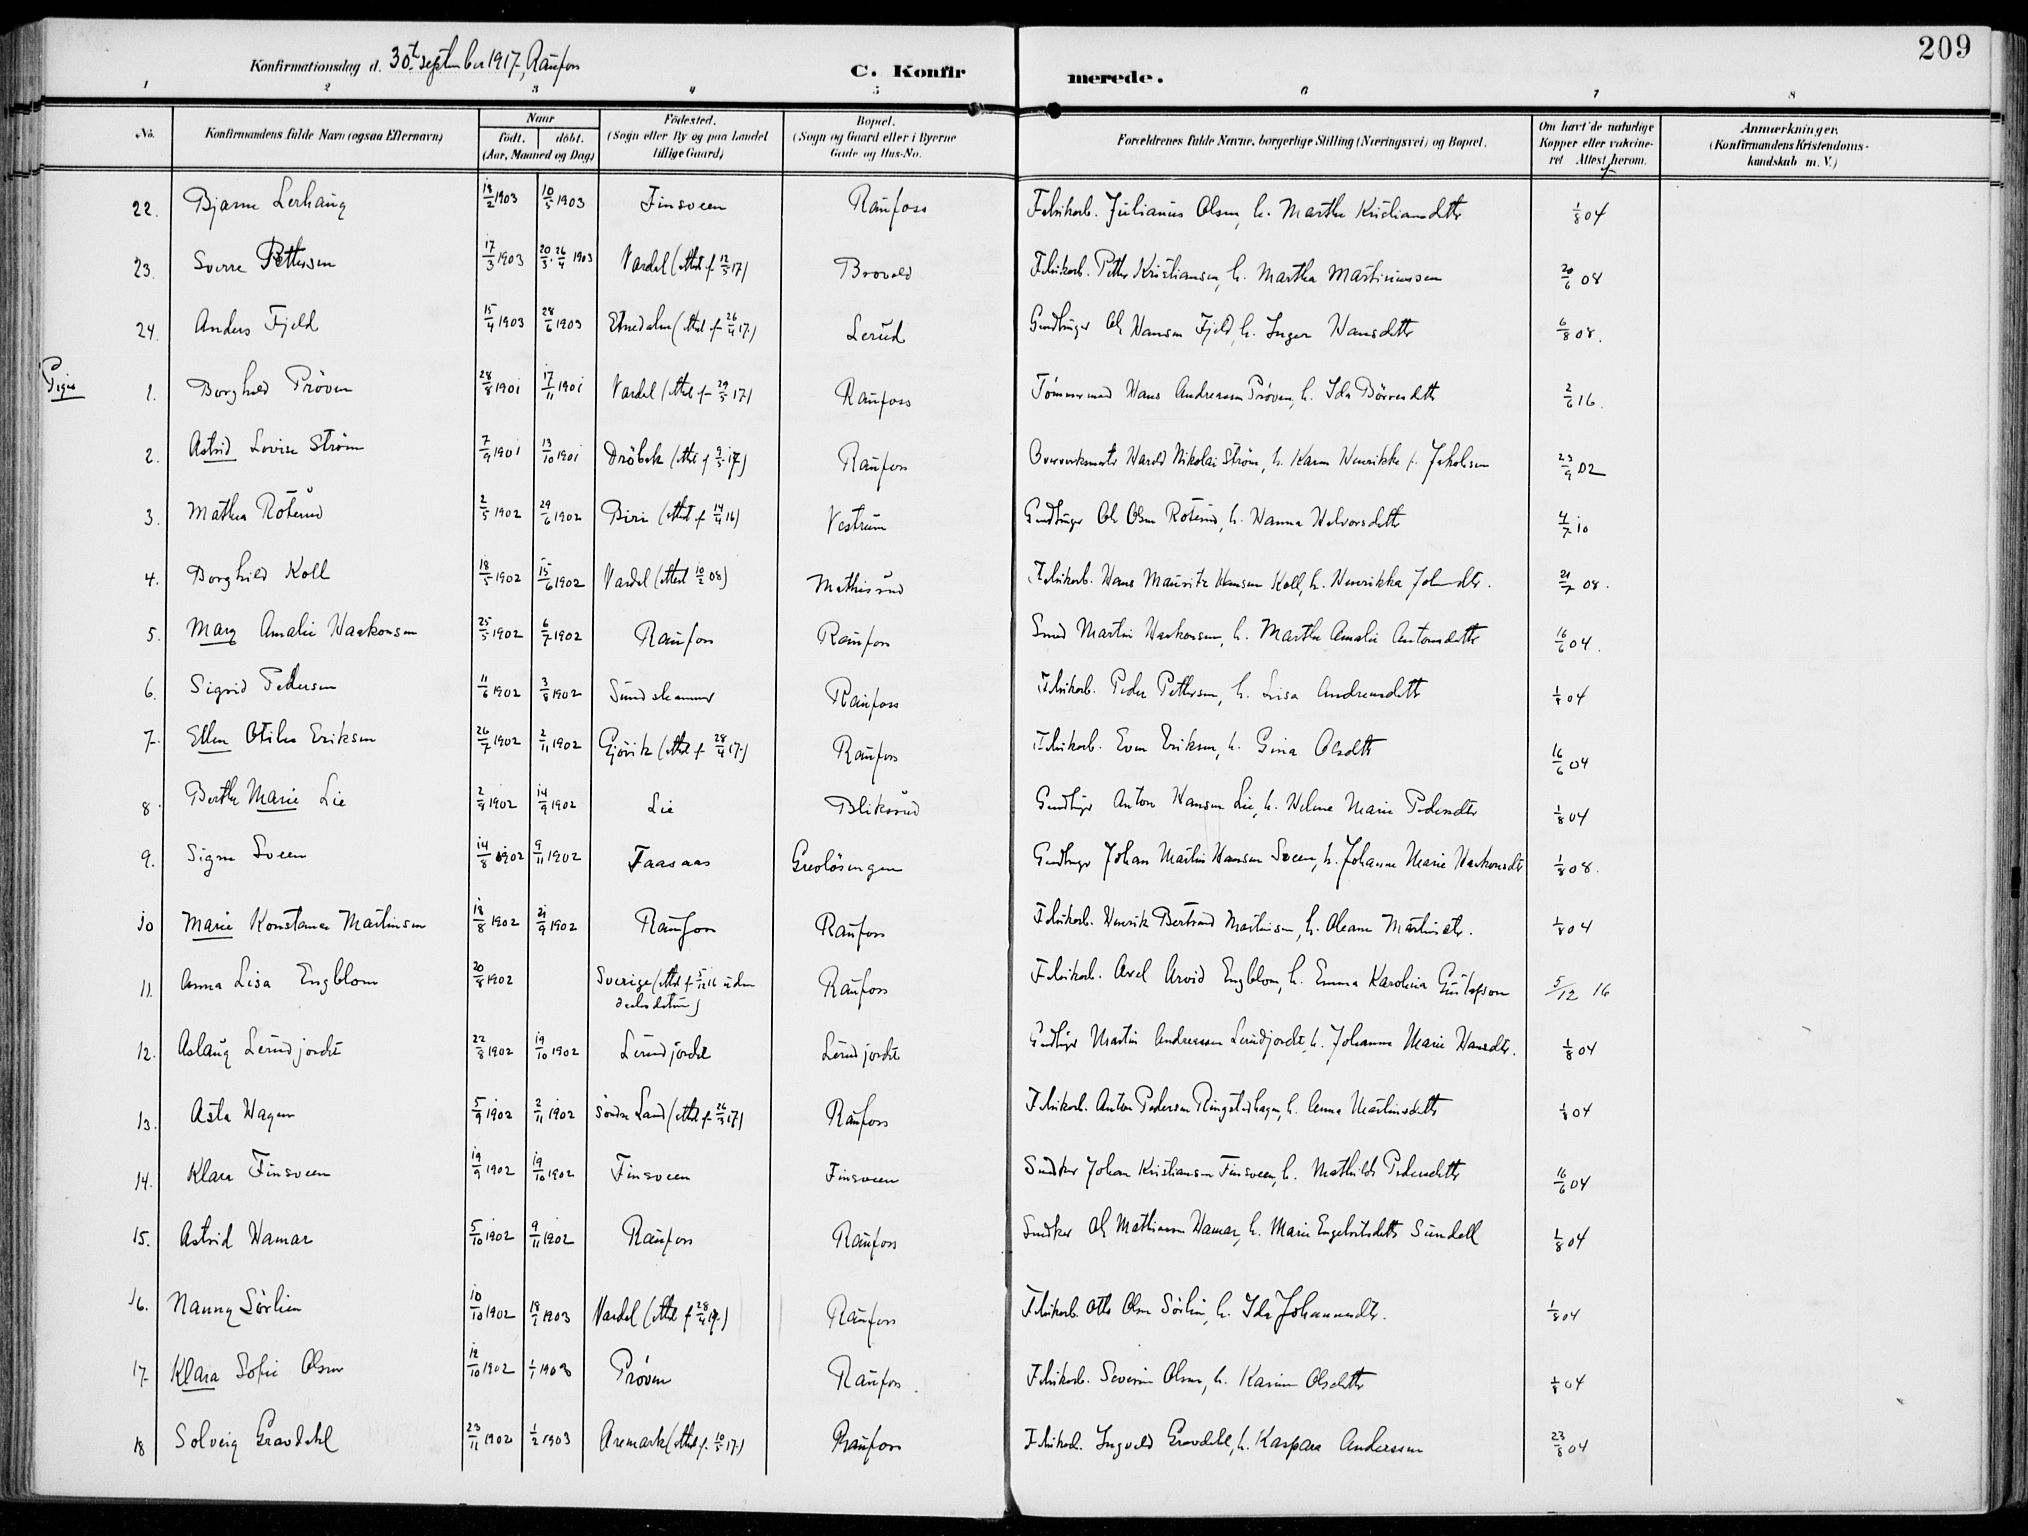 Konfirmationsdag d. 30t september 1917, Raufoss
C. Konfirmerede.
209
1 2 3 4 5 6 7 8
No. Konfirmandens fulde Navn (ogsaa Efternavn) Naar født. døbt. (Aar, Maaned og Dag) Fødested. (Sogn eller By og paa Landet tillige Gaard) Bopæl. (Sogn og Gaard eller i Byerne Gade og Hus-No. Forældrenes fulde Navne, borgerlige Stilling (Næringsvei) og Bopæl. Om havt de naturlige Kopper eller vakcineret Attest herom. Anmærkninger. (Konfirmandens Kristendomskundskab m. V.)
22. Bjarne Lerhaug 18/2 1903 10/5 1903 Finsveen Raufoss Fabrikarb. Julianus Olsen, h. Marthe Kristiansdttr 1/8 04
23. Sverre Pettersen 17/3 1903 20/3. 26/4 1903 Vardal (attest f. 12/5 17) Brovold Fabrikarb. Petter Kristiansen, h. Martha Martinussen 20/6 08
24. Anders Fjeld 15/4 1903 28/6 1903 Etnedalen (attest f. 26/4 17) Lerud Gaardbruger Ole Hansen Fjeld, h. Inger Hansdttr 6/8 08.
Piger
1. Borghild Prøven 28/8 1901 17/11 1901 Vardal (attest f. 29/5 17) Raufoss Tømmermand Hans Andreassen Prøven, h. Ida Børresdttr 2/6 16.
2. Astrid Lovise Strøm 7/9 1901 13/10 1901 Drøbak (attest f. 9/5 17) Raufoss Oververksmester Harald Nikolai Strøm, h. Karen Henrikke f. Jakobsen 23/9 02
3. Mathea Røterud 2/5 1902 29/6 1902 Biri (attest f. 14/4 16) Vestrum Gaardbruger Ole Olsen Røterud, h. Hanna Halvorsdttr 4/7 10
4. Borghild Koll 18/5 1902 15/6 1902 Vardal (attest 10/2 08) Mathisrud Fabrikarb. Hans Mauritz Hansen Koll, h. Henrikka Johansdtr. 21/7 08.
5. Mary Amalie Haakonsen 25/5 1902 6/7 1902 Raufoss Raufoss Smed Martin Haakonsen, h. Marthe Amalie Antonsdattr 16/6 04.
6. Sigrid Pedersen 11/6 1902 3/8 1902 Sundshammer Raufoss Fabrikarb. Peder Pettersen, h. Lisa Andreasdttr 1/8 04
7. Ellen Otilie Eriksen 26/7 1902 2/11 1902 Gjøvik (attest f. 28/4 17) Raufoss Fabrikarb. Even Eriksen, h. Gina Olsdttr 16/6 04
8. Berthe Marie Lie 2/8 1902 14/9 1902 Lie Bliksrud Gaardbruger Anton Hansen Lie, h. Helene Marie Pedersdtr 1/8 04
9. Signe Sveen 14/8 1902 9/11 1902 Faasaas Grevløsengen Gaardbruger Johan Martin Hansen Sveen, h. Johanne Marie Haakonsdtr 1/8 08.
10 Marie Konstance Martinsen 18/8 1902 21/9 1902 Raufoss Raufoss Fabrikarb. Henrik Bertrand Martinsen, h. Oleane Martinsdtr. 1/8 04
11. Anna Lisa Engblom 20/8 1902 Sverige (attest f. 5/12 16 uden daabsdatum) Raufoss Fabrikarb. Axel Arvid Engblom, h. Emma Karolina Gustafson 5/12 16
12. Aslaug Lerudjordet 22/8 1902 19/10 1902 Lerudjordet Lerudjordet Gaardbruger Martin Andreassen Lerudjordet, h. Johanne Marie Hansdtr. 1/8 04
13. Asta Hagen 5/9 1902 2/11 1902 Søndre Land (attest f. 26/3 17) Raufoss Fabrikarb. Anton Pedersen Ringstadhagen, h. Anna Martinsdttr 1/8 04
14. Klara Finsveen 19/9 1902 19/10 1902 Finsveen Finsveen Snedker Johan Kristiansen Finsveen, h. Mathilde Pedersdttr 16/6 04
15. Astrid Hamar 5/10 1902 9/11 1902 Raufoss Raufoss Snedker Ole Mathiassen Hamar, h. Marie Engebretsdttr Sundell 1/8 04
16. Nanny Sørlien 10/10 1902 18/1 1903 Vardal (attest f. 28/4 17) Raufoss Fabrikarb. Otto Olsen Sørlien, h. Ida Johannesdtr. 1/8 04
17. Klara Sofie Olsen 12/10 1902 1/1 1903 Prøven Raufoss. Fabrikarb. Severin Olsen, h. Karine Olsdttr 1/8 04
18 Solveig Gravdahl 23/11 1902 1/2 1903 Aremark (attest f. 10/5 17) Raufoss Fabrikarb. Ingvald Gravdahl, h. Kaspara Andersen 23/8 04